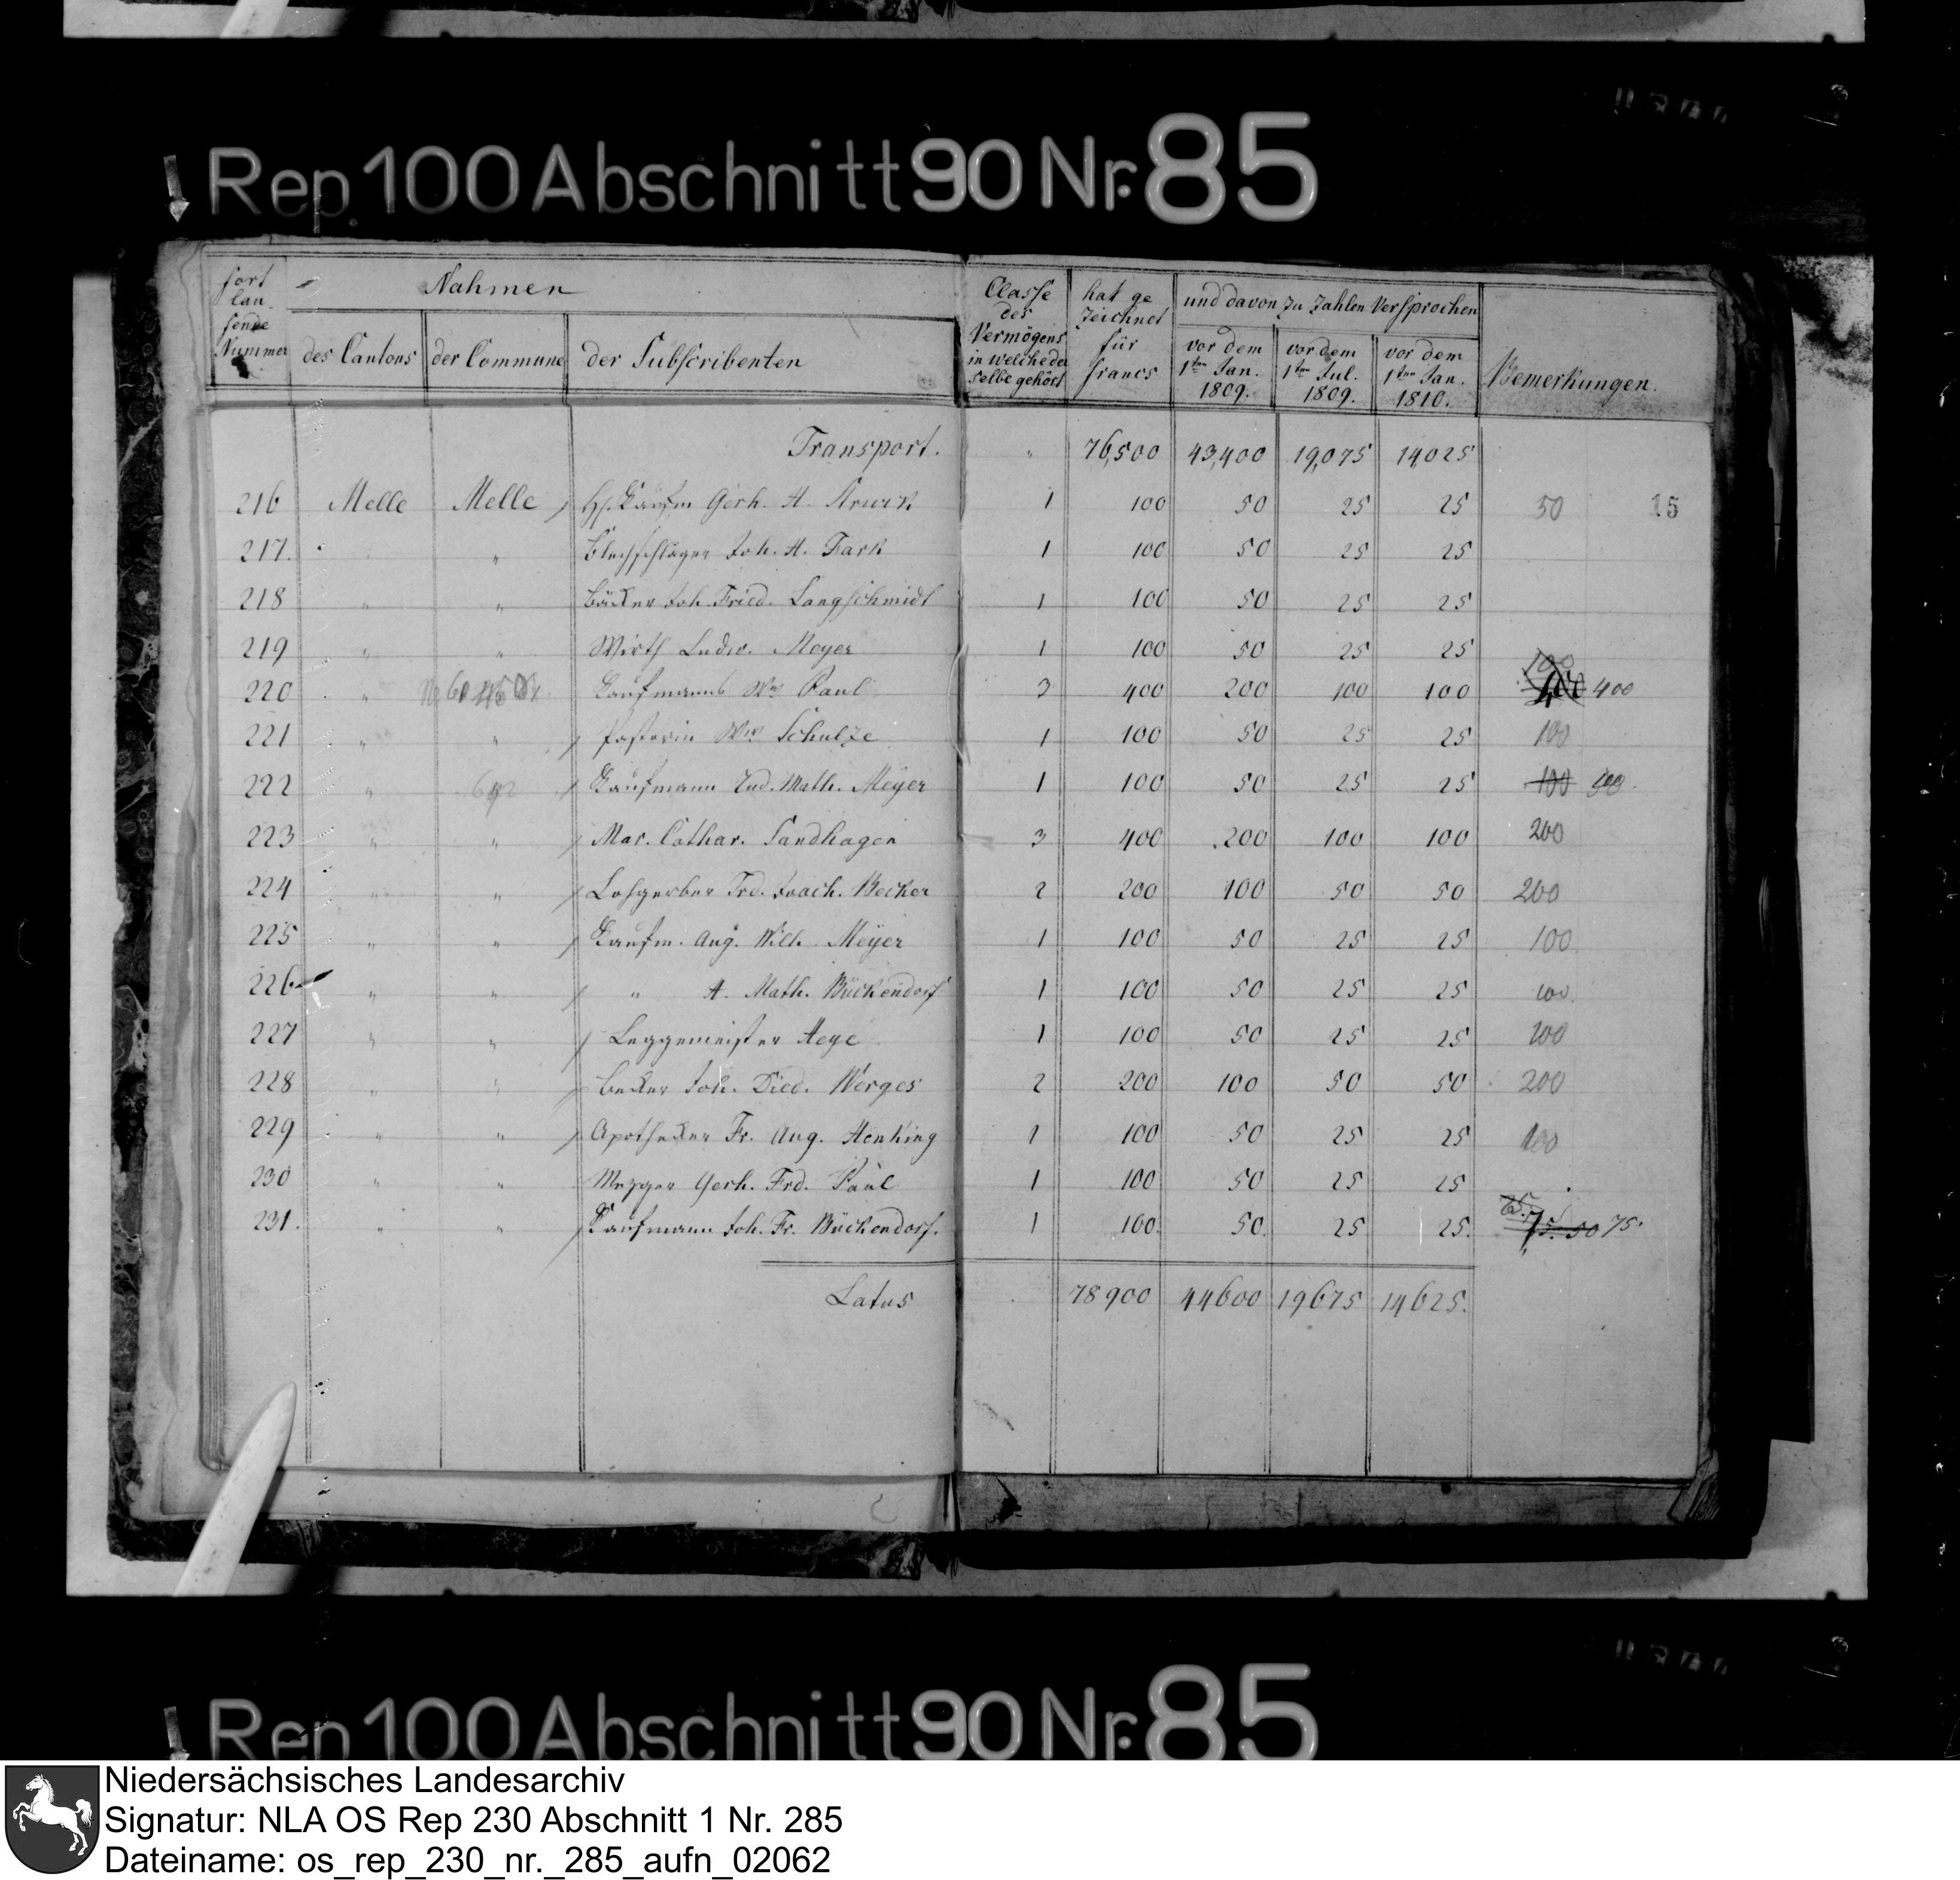 Rep. 100 Abschnitt 90 Nr. 85
fort lau- fende Nummer
Nahmen
des Cantons
der Commune
der Subscribenten
Classe des Vermögens in welche der selbe gehört
hat ge zeichnet für francs
und davon zu zahlen versprochen
vor dem 1ten Jan. 1809.
vor dem 1ten Jul. 1809.
vor dem 1ten Jan. 1810.
Bemerkungen.
Transport. " 76,500 43,400 19,075 14,025
216 Melle Melle Kaufm Gerh. H. 1 100 50 25 25 50 15
217. " Blechschläger Joh. H. Tark 1 100 50 25 25
218 " " Bäcker Joh. Fried. Langschmidt 1 100 50 25 25
219 " " Wirth Ludw. Meyer 1 100 50 25 25
220 " Kaufmanns Ww Paul 3 400 200 100 100 400
221 " " Pastorin Ww Schulze 1 100 50 25 25 100
222 " Kaufmann Lud. Math. Meÿer 1 100 50 25 25 100
223 " " Mar. Cathar. Sandhagen 3 400 200 100 100 200
224 " " Lohgerber Frd. Joach. Becker 2 200 100 50 50 200
225 " " Kaufm. Aug. Wilh. Meÿer 1 100 50 25 25 100
226 " " " A. Math. Bückendorf 1 100 50 25 25 100
227 " " Leggemeister Heye 1 100 50 25 25 100
228 " " Becker Joh. Died. Werges 2 200 100 50 50 200
229 " " Apotheker Fr. Aug. Henking 1 100 50 25 25 100
230 " " Mezger Gerh. Frd. Paul 1 100 50 25 25
231. " " Kaufmann Joh. Fr. Bückendorf. 1 100. 50. 25 25. 75. 50 75.
Latus 78900 44600 19675 14625.
Rep 100 Abschnitt 90 Nr. 85
Niedersächsisches Landesarchiv
Signatur: NLA OS Rep 230 Abschnitt 1 Nr. 285
Dateiname: os_rep_230_nr._285_aufn_02062